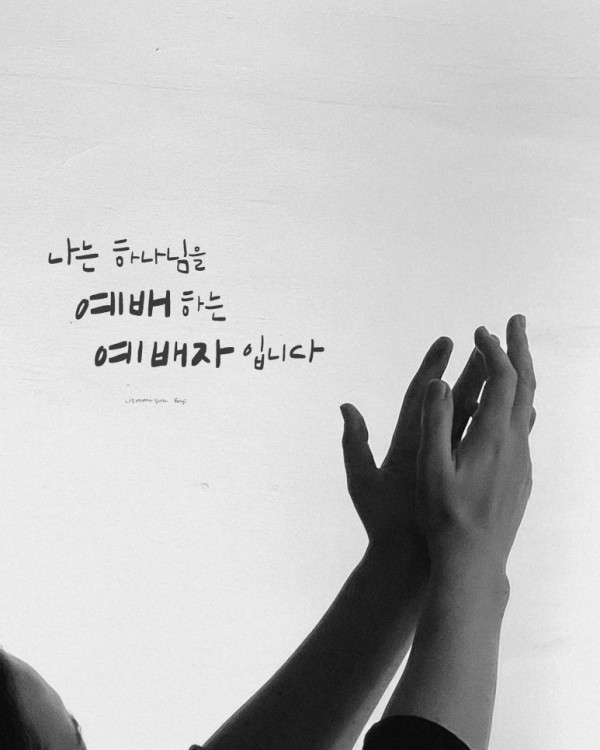 나는 하나님을
예배 하는
예배자 입니다